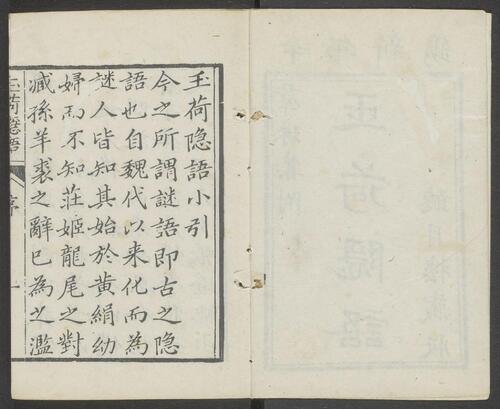 玉荷隐語小引
今之所謂謎語即古之隐
語也自魏代以来化而為
謎人皆知其始於黄絹幼
婦而不知荘姬龍尾之對
臧孫羊裘之辭已為之濫
玉荷隱語
序
一
玉荷隱語